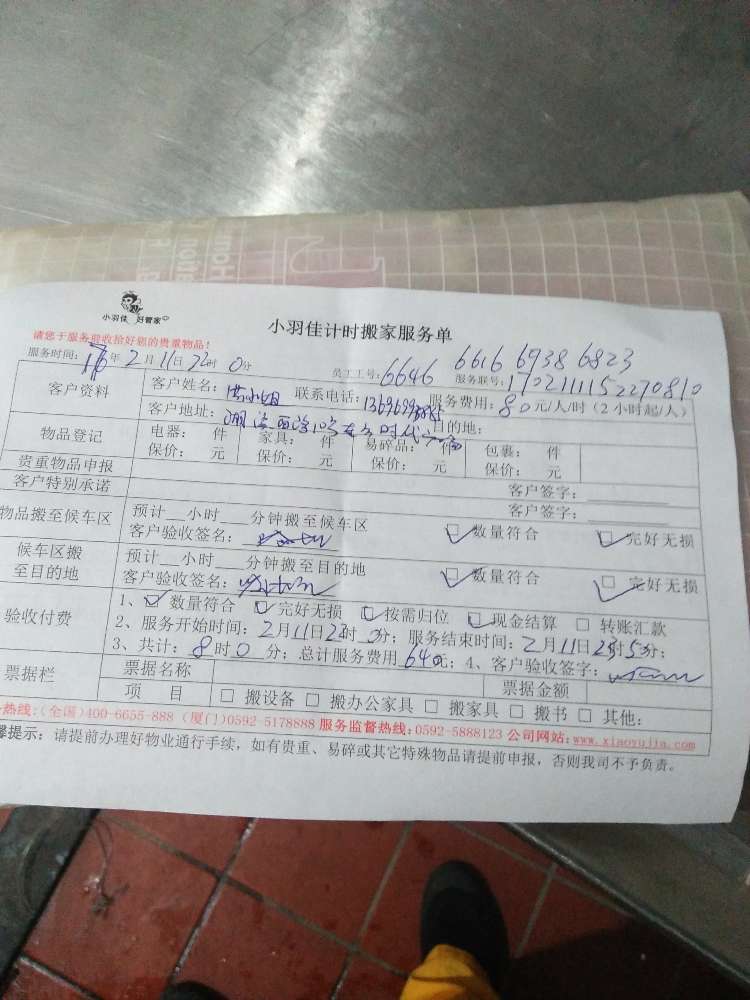 小羽佳 好管家
小羽佳计时搬家服务单
请您于服务前收拾好您的贵重物品!
6616 6938 6823
服务时间: 年 2月11日 22时 0分 员工工号: 6646 服务联号: 1702111152270810
客户资料 客户姓名: 联系电话: 服务费用: 80元/人/时(2小时起/人)
客户地址: 目的地:
物品登记 电器: 件 家具: 件 易碎品: 件 包裹: 件
保价: 元 保价: 元 保价: 元 保价: 元
贵重物品申报 客户签字:
客户特别承诺 客户签字:
物品搬至候车区 预计__小时___分钟搬至候车区
客户验收签名: ☑数量符合 ☑完好无损
候车区搬至目的地 预计__小时___分钟搬至目的地
客户验收签名: ☑数量符合 ☑完好无损
验收付费 1、☑数量符合 ☑完好无损 ☑按需归位 ☑现金结算 □转账汇款
2、服务开始时间: 2月11日 时 分; 服务结束时间: 2月11日 时 分;
3、共计: 8时0分; 总计服务费用640元; 4、客户验收签字:
票据栏 票据名称 票据金额
项 目 □搬设备 □搬办公家具 □搬家具 □搬书 □其他:
热线:(全国)400-6655-888 (厦门)0592-5178888 服务监督热线:0592-5888123 公司网站:www.xiaoyujia.com
馨提示: 请提前办理好物业通行手续,如有贵重、易碎或其它特殊物品请提前申报,否则我司不予负责。